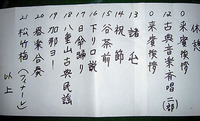 休憩
0 来賓挨拶
12 古典音楽斉唱（二部）
0 来賓挨拶
13 諸屯
14 祝節
15 谷茶前
16 下リ口説
17 日傘踊り
18 八重山古典民謡
19 加那ヨー
20 器楽合奏
21 松竹梅（フィナーレ）
以上